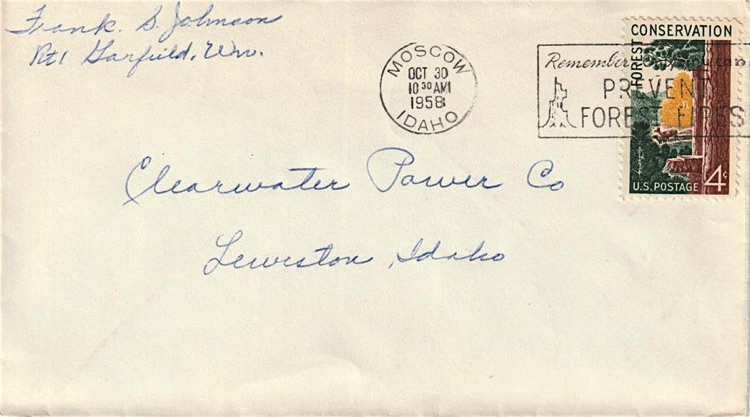 Frank S. Johnson
Rt 1 Garfield, Wn.
MOSCOW
OCT 30
10 30 AM
1958
IDAHO
Remember
PREVENT
FOREST FIRES
FOREST CONSERVATION
U.S. POSTAGE 4¢
Clearwater Power Co
Lewiston, Idaho